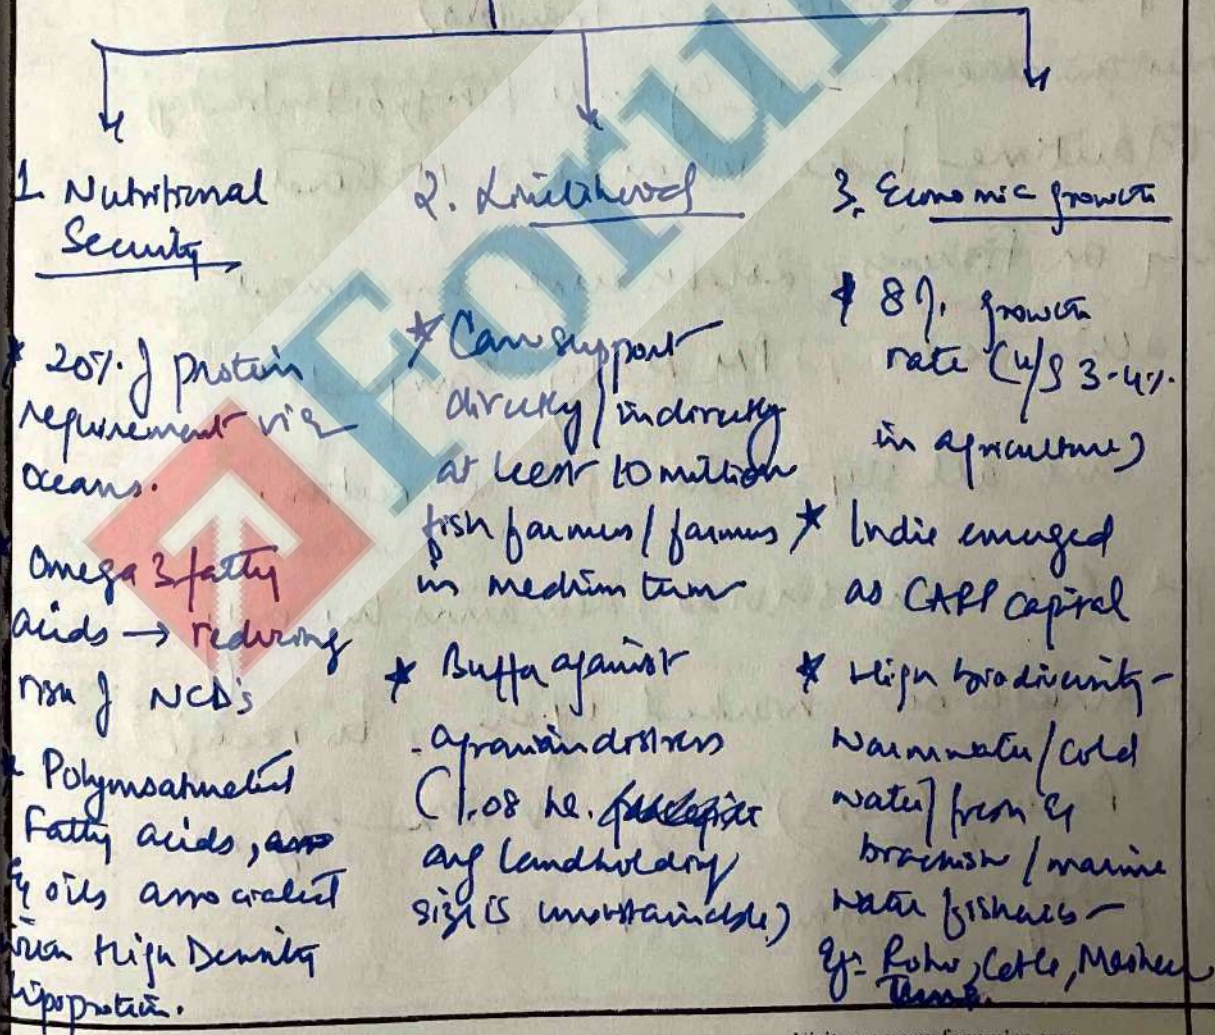 1. Nutritional
Security
* 20% of protein
requirement via
oceans.
* Omega 3 fatty
acids → reducing
risk of NCD's
* Polyunsaturated
Fatty acids,
& oils associated
with High Density
lipoprotein.
2. Livelihood
* Can support
directly/indirectly
at least 10 million
fish farmers/farmers
in medium term
* Buffer against
agrarian distress
(1.08 he.
avg landholding
size is unsustainable)
3. Economic growth
* 8% growth
rate (v/s 3-4%
in agriculture)
* India emerged
as capital
* High biodiversity -
warm water/cold
water/fresh &
brackish/marine
water fisheries -
Eg:- Rohu, Catla,
Tuna.
Forum